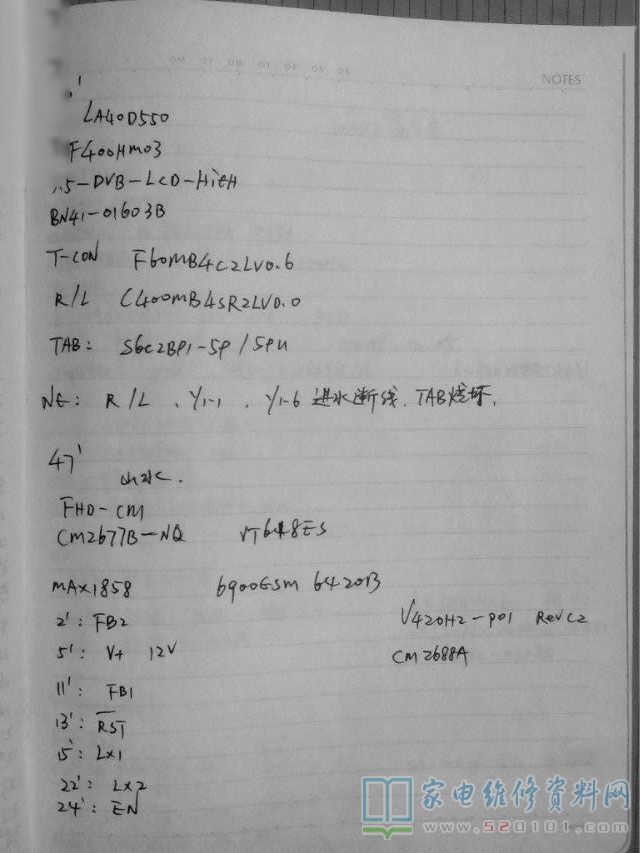 NOTES
LA40D550
F400HM03
.5-DVB-LCD-HiEH
BN41-01603B
T-CON F60MB4C2LV0.6
R/L C400MB4SR2LV0.0
TAB: S6C2BP1-5P/5PU
NE: R/L 、Y1-1 、Y1-6 进水断线、TAB烧坏、
47'
FHD-CM
CM2677B-NQ VT648ES
MAX1858 6900GSM 6420B
2': FB2 V420H2-P01 Rev C2
5': V+ 12V CM2688A
11': FB1
13': RST
15': LX1
22': LX2
24': EN
家电维修资料网
www.520101.com